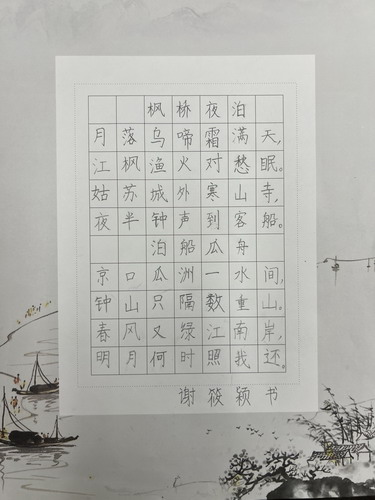 枫桥夜泊
月落乌啼霜满天,
江枫渔火对愁眠。
姑苏城外寒山寺,
夜半钟声到客船。
泊船瓜舟
京口瓜洲一水间,
钟山只隔数重山。
春风又绿江南岸,
明月何时照我还。
谢筱颖书